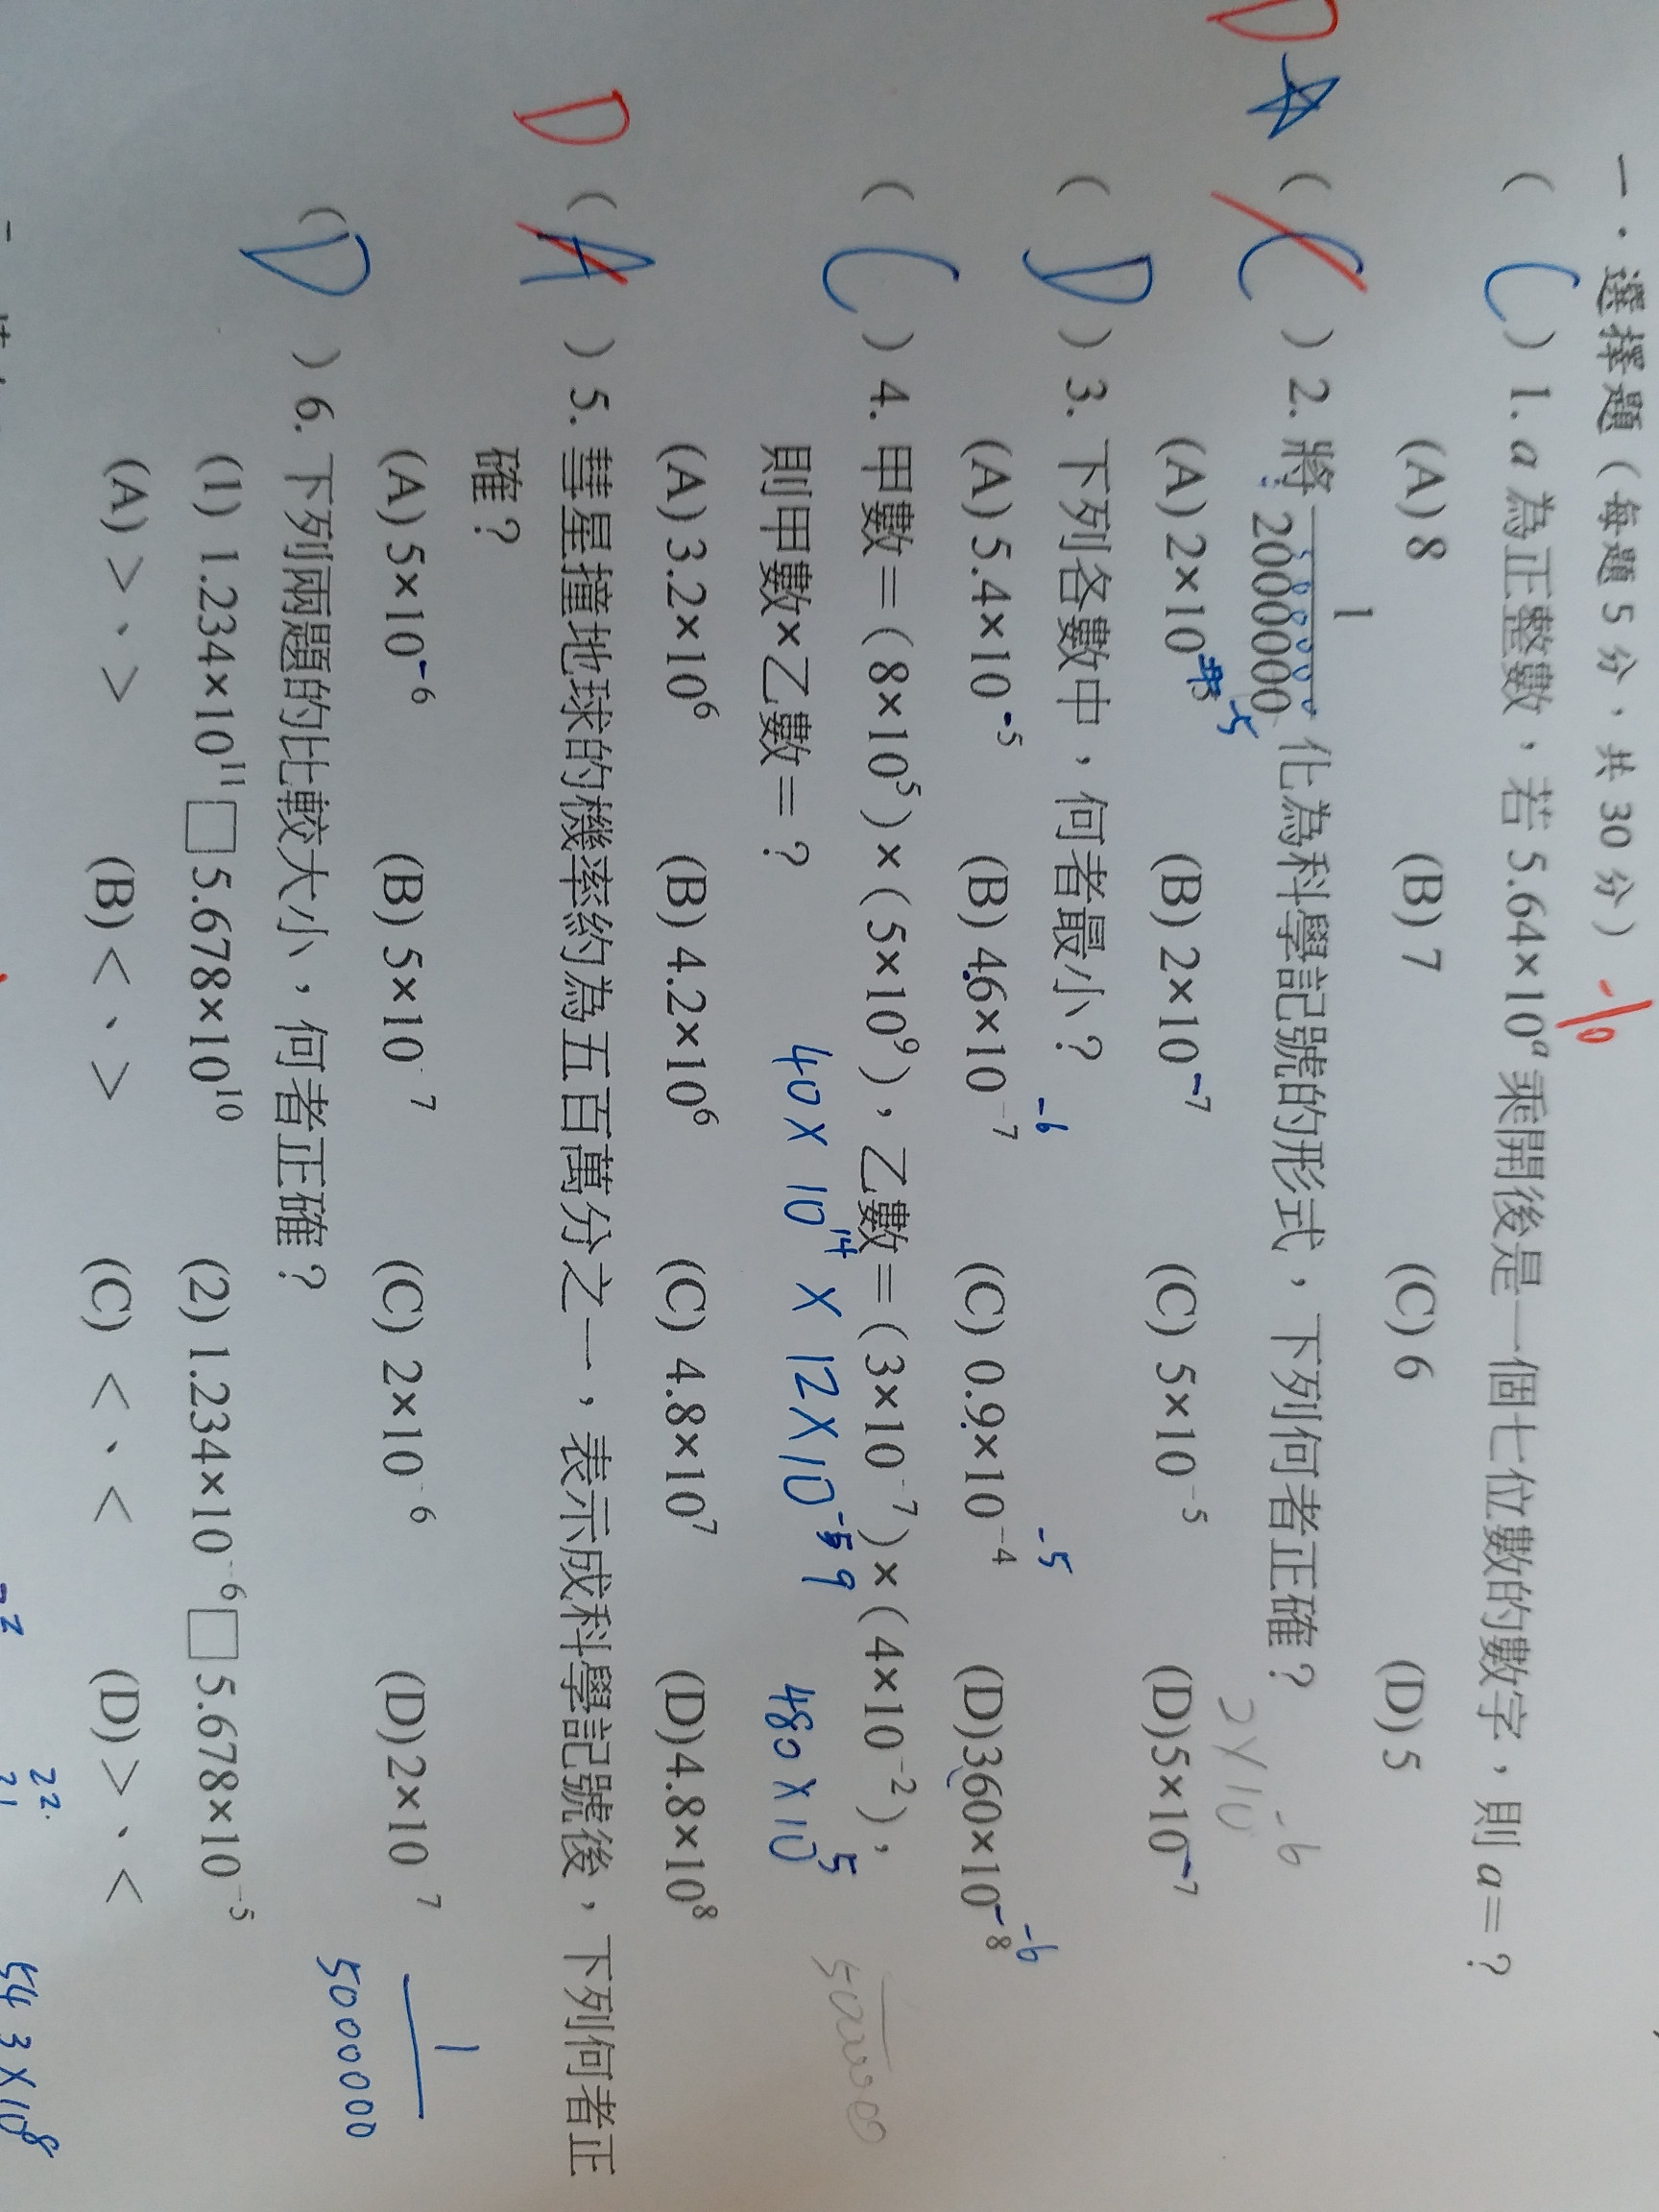 一、選擇題（每題 5 分，共 30 分） -10
( C ) 1. a 為正整數，若 5.64×10ᵃ 乘開後是一個七位數的數字，則 a＝？
(A) 8 (B) 7 (C) 6 (D) 5
D ☆ ( C ) 2. 將 1/2000000 化為科學記號的形式，下列何者正確？ 2×10⁻⁶
(A) 2×10⁻⁵ -5 (B) 2×10⁻⁷ (C) 5×10⁻⁵ (D) 5×10⁻⁷
( D ) 3. 下列各數中，何者最小？
-6 -5 -6
(A) 5.4×10⁻⁵ (B) 4.6×10⁻⁷ (C) 0.9×10⁻⁴ (D) 360×10⁻⁸
( C ) 4. 甲數＝(8×10⁵)×(5×10⁹)，乙數＝(3×10⁻⁷)×(4×10⁻²)，
則甲數×乙數＝？ 40×10¹⁴×12×10⁻⁹ 480×10⁵
(A) 3.2×10⁶ (B) 4.2×10⁶ (C) 4.8×10⁷ (D) 4.8×10⁸
D ( A ) 5. 彗星撞地球的機率約為五百萬分之一，表示成科學記號後，下列何者正
確？
(A) 5×10⁻⁶ (B) 5×10⁻⁷ (C) 2×10⁻⁶ (D) 2×10⁻⁷
1/5000000
( D ) 6. 下列兩題的比較大小，何者正確？
(1) 1.234×10¹¹□5.678×10¹⁰ (2) 1.234×10⁻⁶□5.678×10⁻⁵
(A) ＞、＞ (B) ＜、＞ (C) ＜、＜ (D) ＞、＜